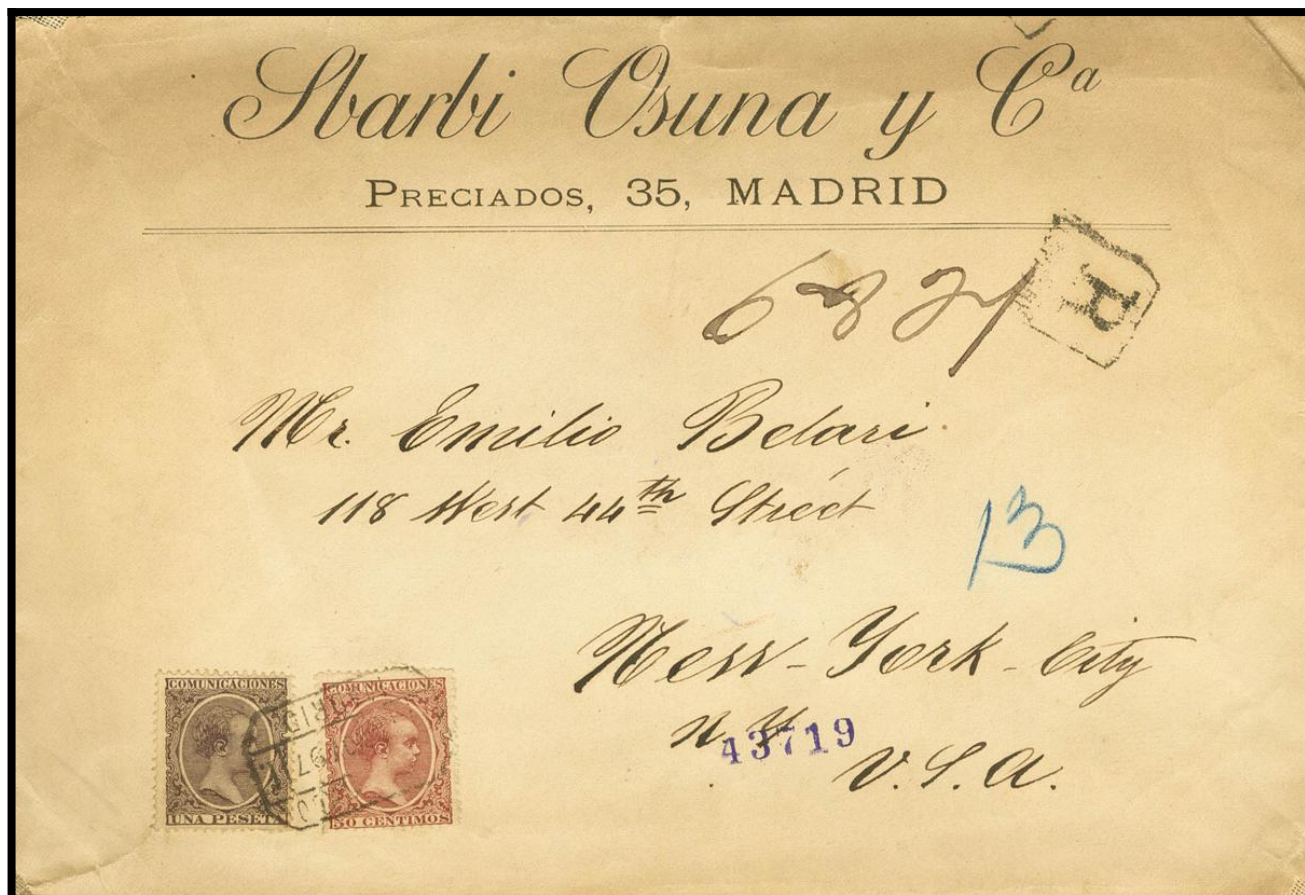 Sbarbi Osuna y Cª
PRECIADOS, 35, MADRID
R
Mr. Emilio Belari
118 West 44th Street
13
New-York-City
N.Y.
43719
U.S.A.
COMUNICACIONES
UNA PESETA
COMUNICACIONES
50 CENTIMOS